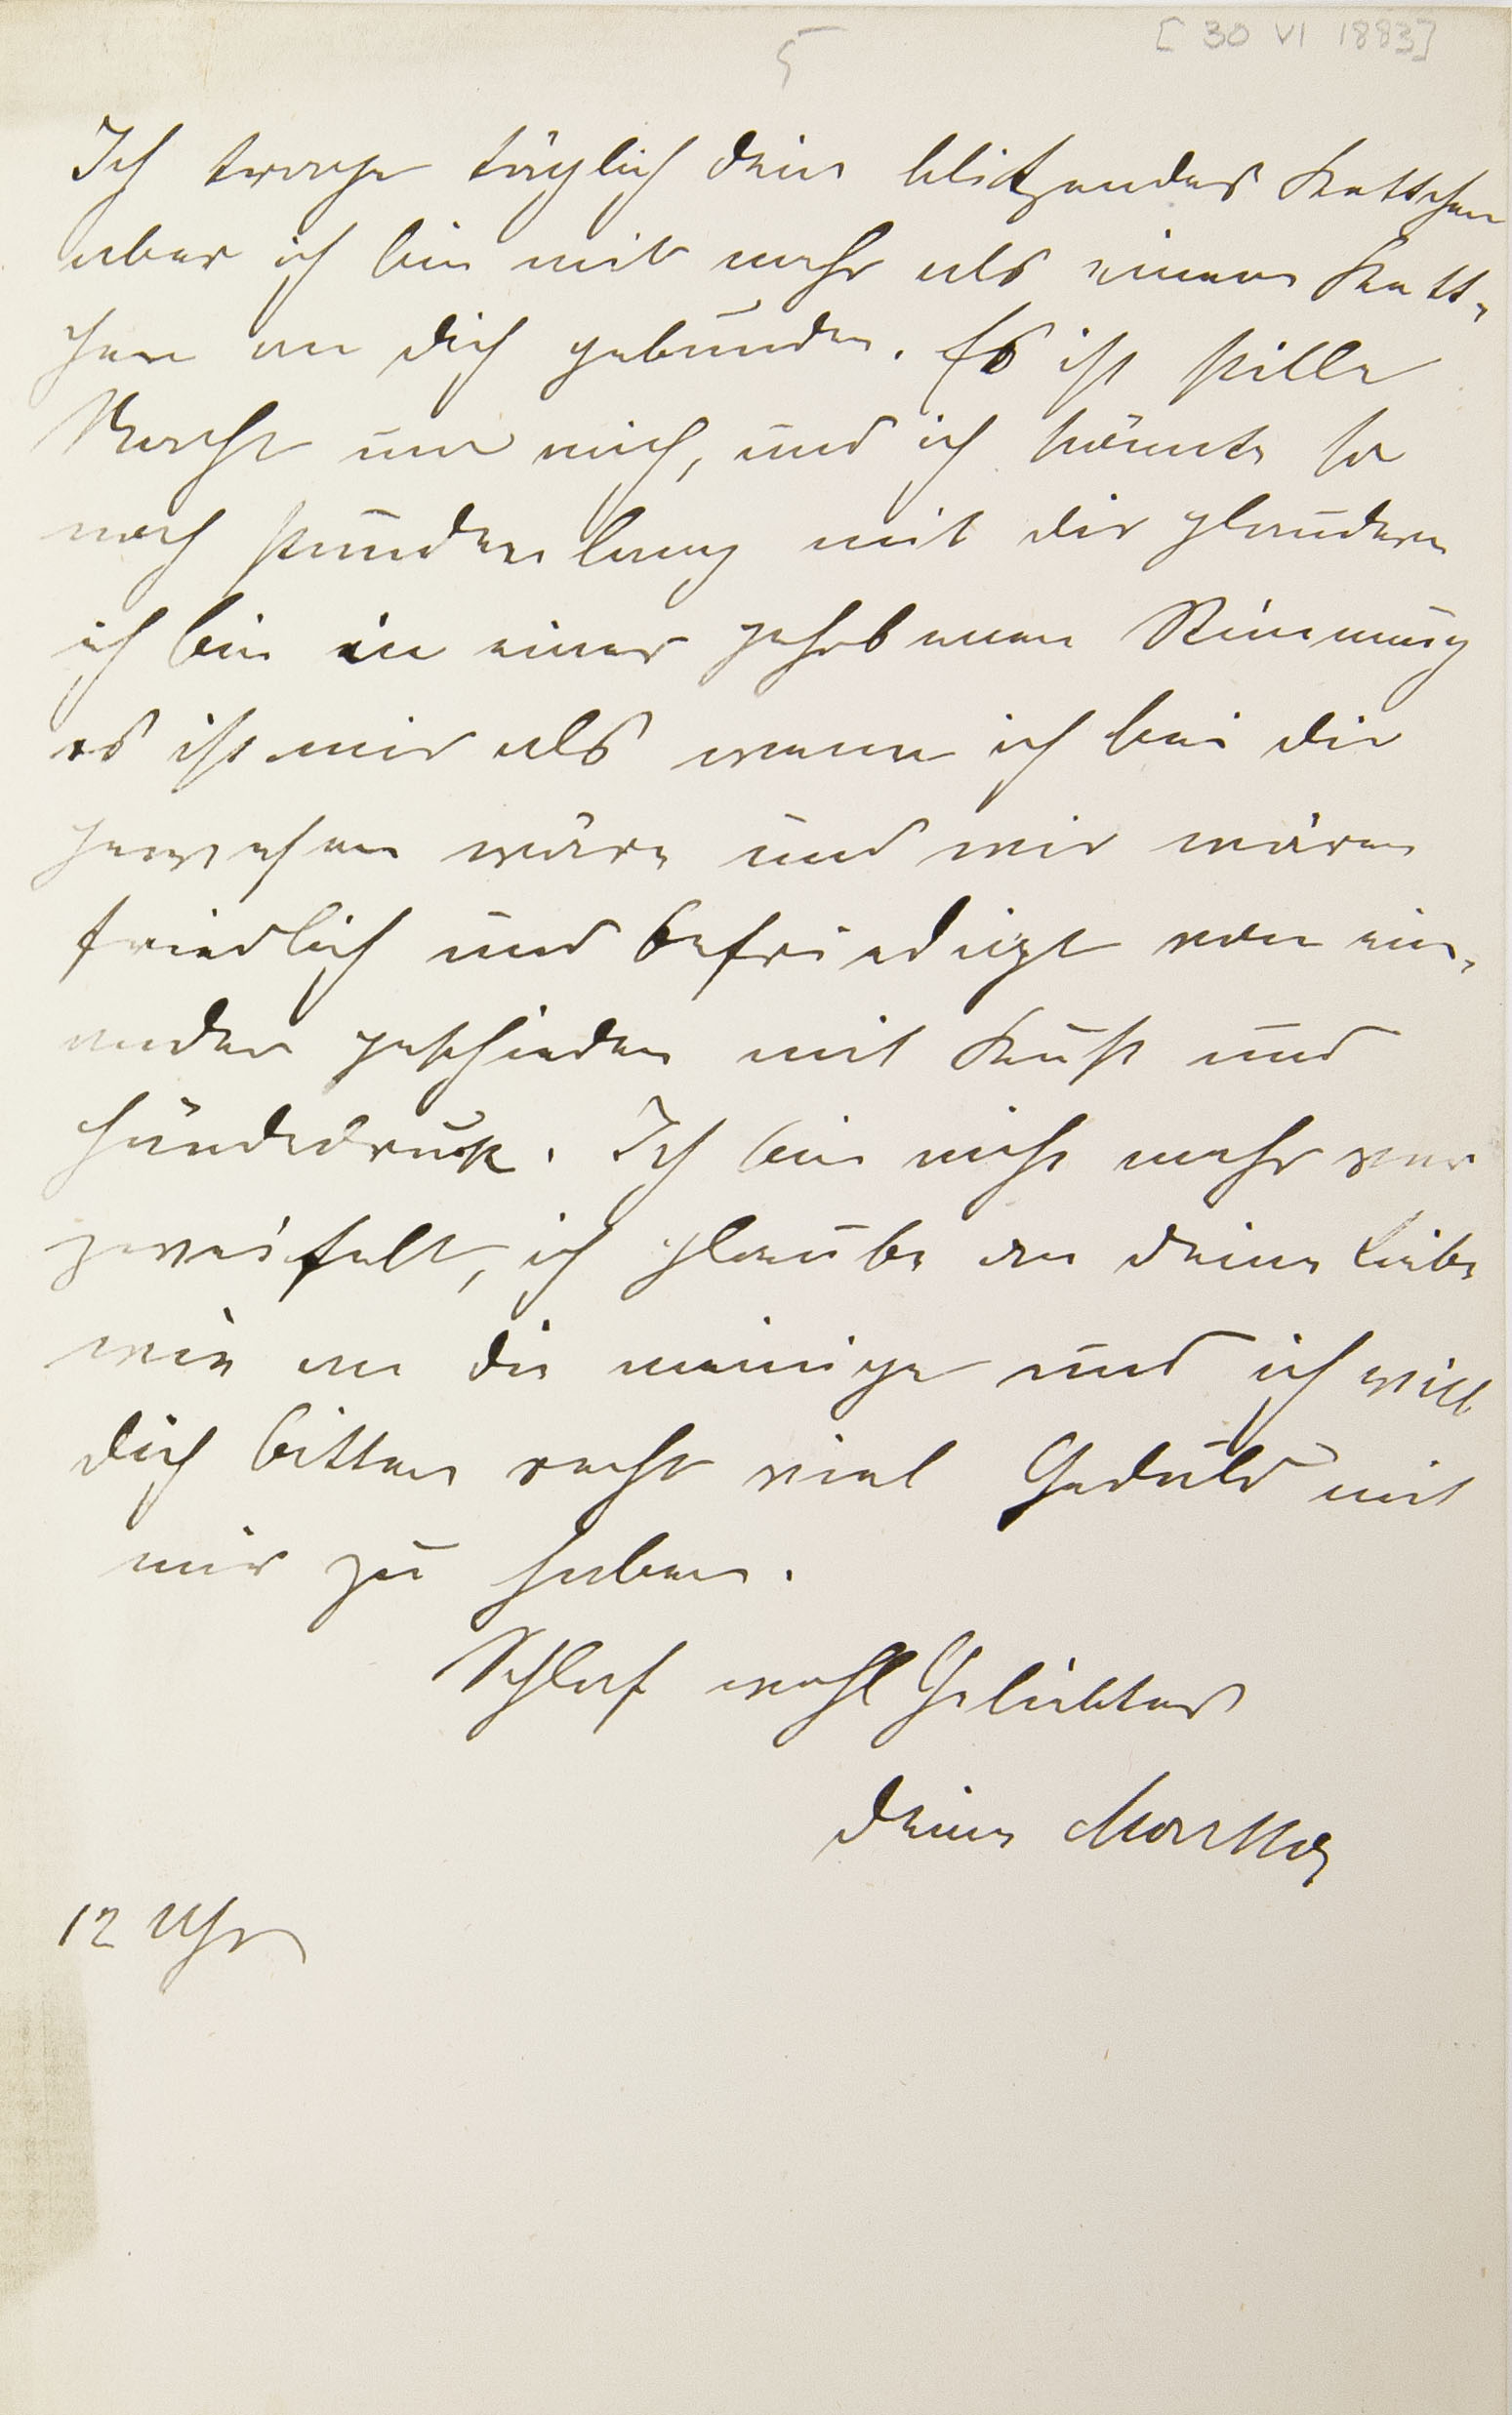 5
[30 VI 1883]
Ich trage täglich dein blitzendes Kettchen
aber ich bin mit mehr als einem Kett-
chen an dich gebunden. Es ist stille
Nacht um mich, und ich könnte so
noch stundenlang mit dir plaudern
ich bin in einer gehobenen Stimmung
es ist mir als wenn ich bei dir
gewesen wäre und wir wären
friedlich und befriedigt von ein-
ander geschieden mit Kuß und
Händedruck. Ich bin nicht mehr ver
zweifelt, ich glaube an deine Liebe
wie an die meinige und ich will
dich bitten recht viel Geduld mit
mir zu haben.
Schlaf wohl Geliebter
deine Martha
12 Uhr